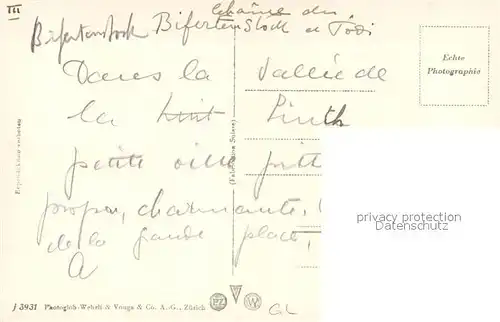 III
Chaîne du
Bifertenstock Bifertenstock et Tödi
Dans la vallée de
la Lint Linth
petite ville
propre, charmante,
de la grande place,
A
Echte
Photographie
Reproduktion verboten
J 3931 Photoglob-Wehrli & Vouga & Co. A.-G., Zürich
PZ W
GL
privacy protection
Datenschutz